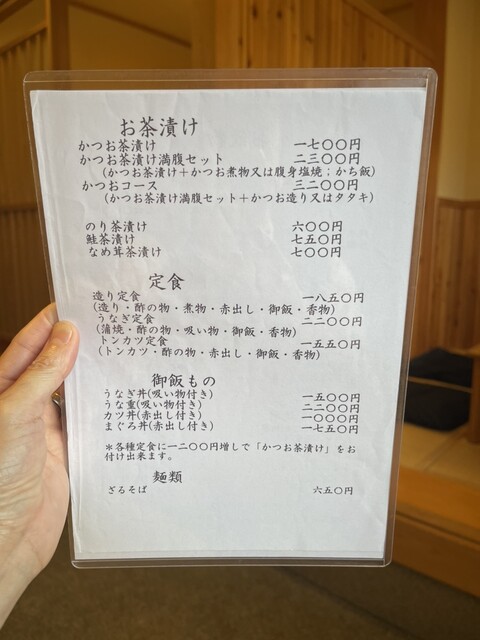 お茶漬け
かつお茶漬け 一七〇〇円
かつお茶漬け満腹セット 二三〇〇円
(かつお茶漬け＋かつお煮物又は腹身塩焼；かち飯)
かつおコース 三二〇〇円
(かつお茶漬け満腹セット＋かつお造り又はタタキ)
のり茶漬け 六〇〇円
鮭茶漬け 七五〇円
なめ茸茶漬け 七〇〇円
定食
造り定食 一八五〇円
(造り・酢の物・煮物・赤出し・御飯・香物)
うなぎ定食 二二〇〇円
(蒲焼・酢の物・吸い物・御飯・香物)
トンカツ定食 一五五〇円
(トンカツ・酢の物・赤出し・御飯・香物)
御飯もの
うなぎ丼(吸い物付き) 一五〇〇円
うな重(吸い物付き) 二二〇〇円
カツ丼(赤出し付き) 一〇〇〇円
まぐろ丼(赤出し付き) 一七五〇円
＊各種定食に一二〇〇円増しで「かつお茶漬け」をお
付け出来ます。
麺類
ざるそば 六五〇円